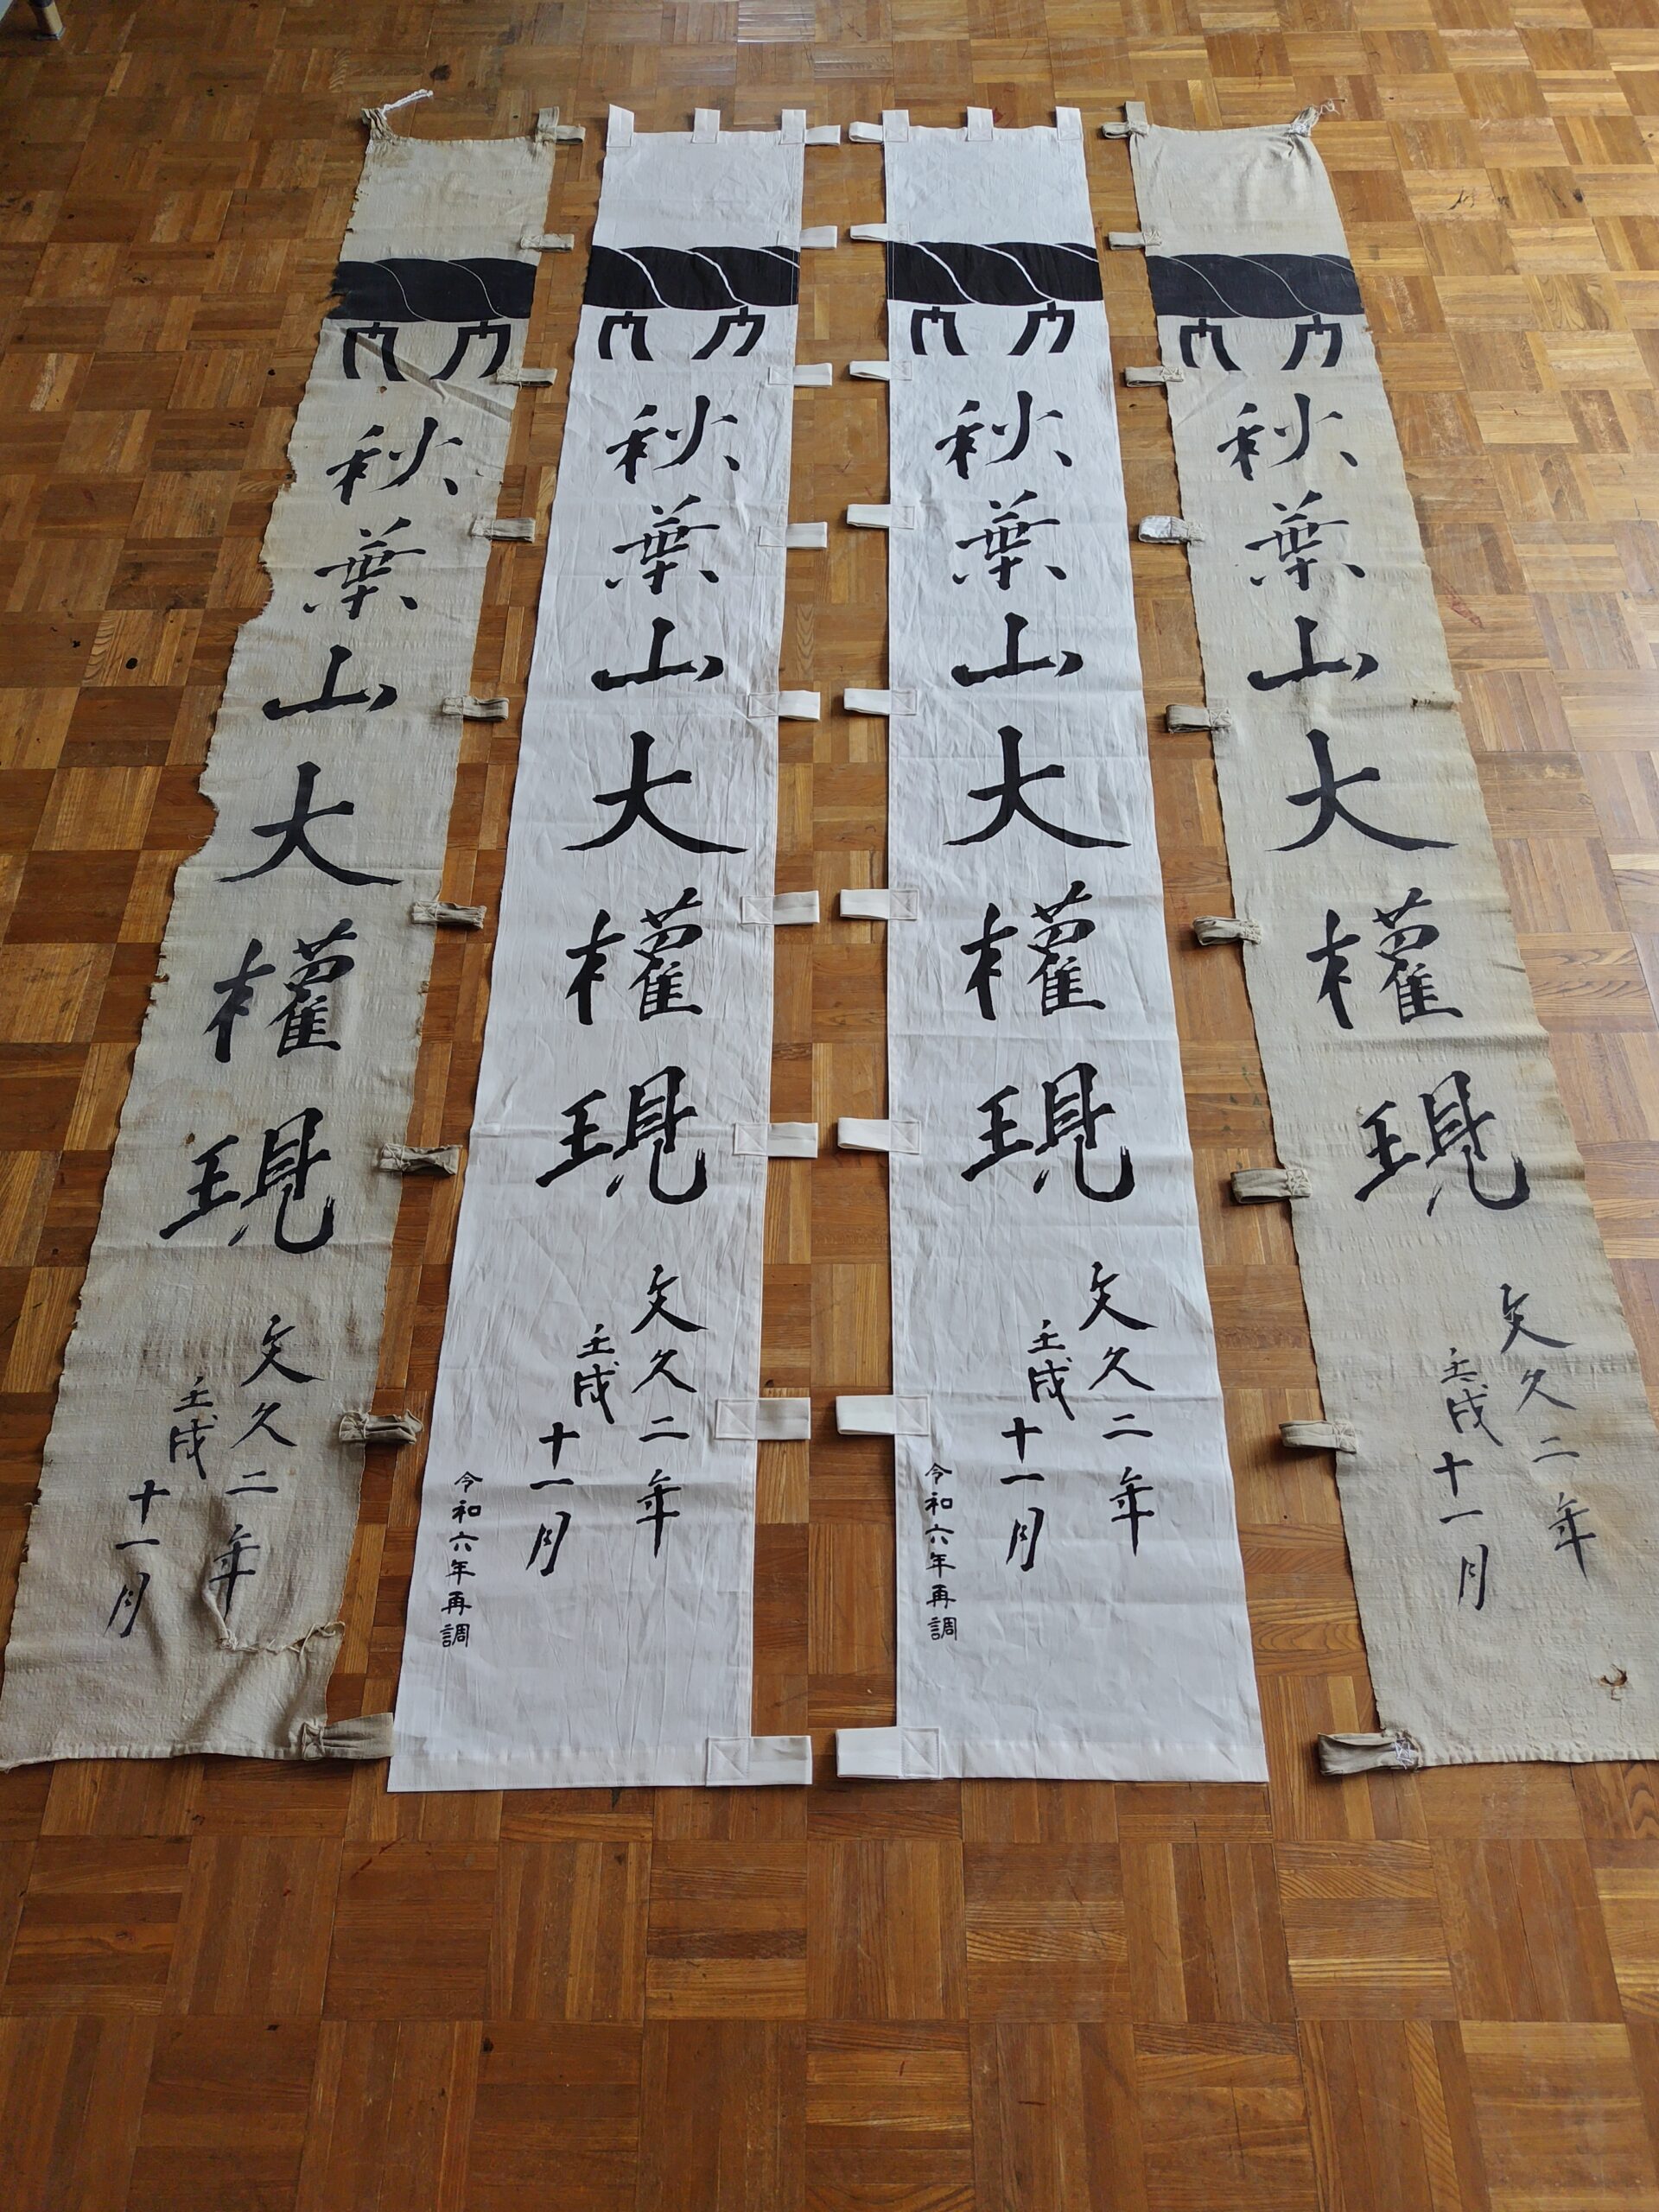 秋葉山大權現
文久二年
壬戌
十一月
秋葉山大權現
文久二年
壬戌
十一月
令和六年再調
秋葉山大權現
文久二年
壬戌
十一月
令和六年再調
秋葉山大權現
文久二年
壬戌
十一月